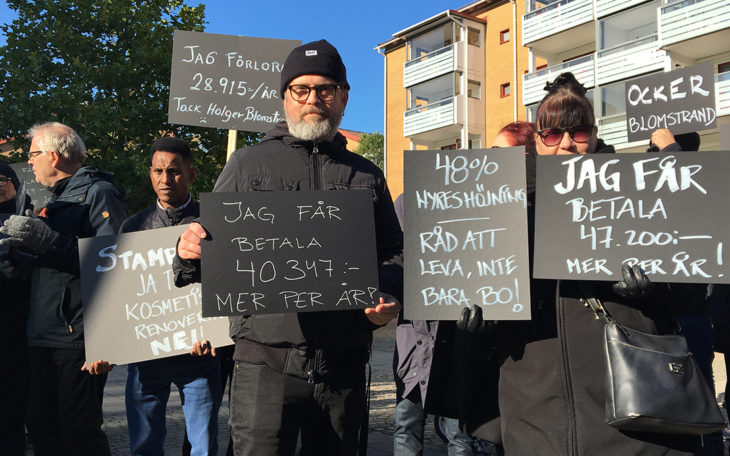 JAG FÖRLORA
28.915:-/ÅR
TACK HOLGER BLOMST
OCKER
BLOMSTRAND
STAMR
JA T
KOSMETI
RENOVER
NEJ!
JAG FÅR
BETALA
40347:-
MER PER ÅR!
48%
HYRESHÖJNING
RÄD ATT
LEVA, INTE
BARA BO!
JAG FÅR
BETALA
47.200:-
MER PER ÅR!